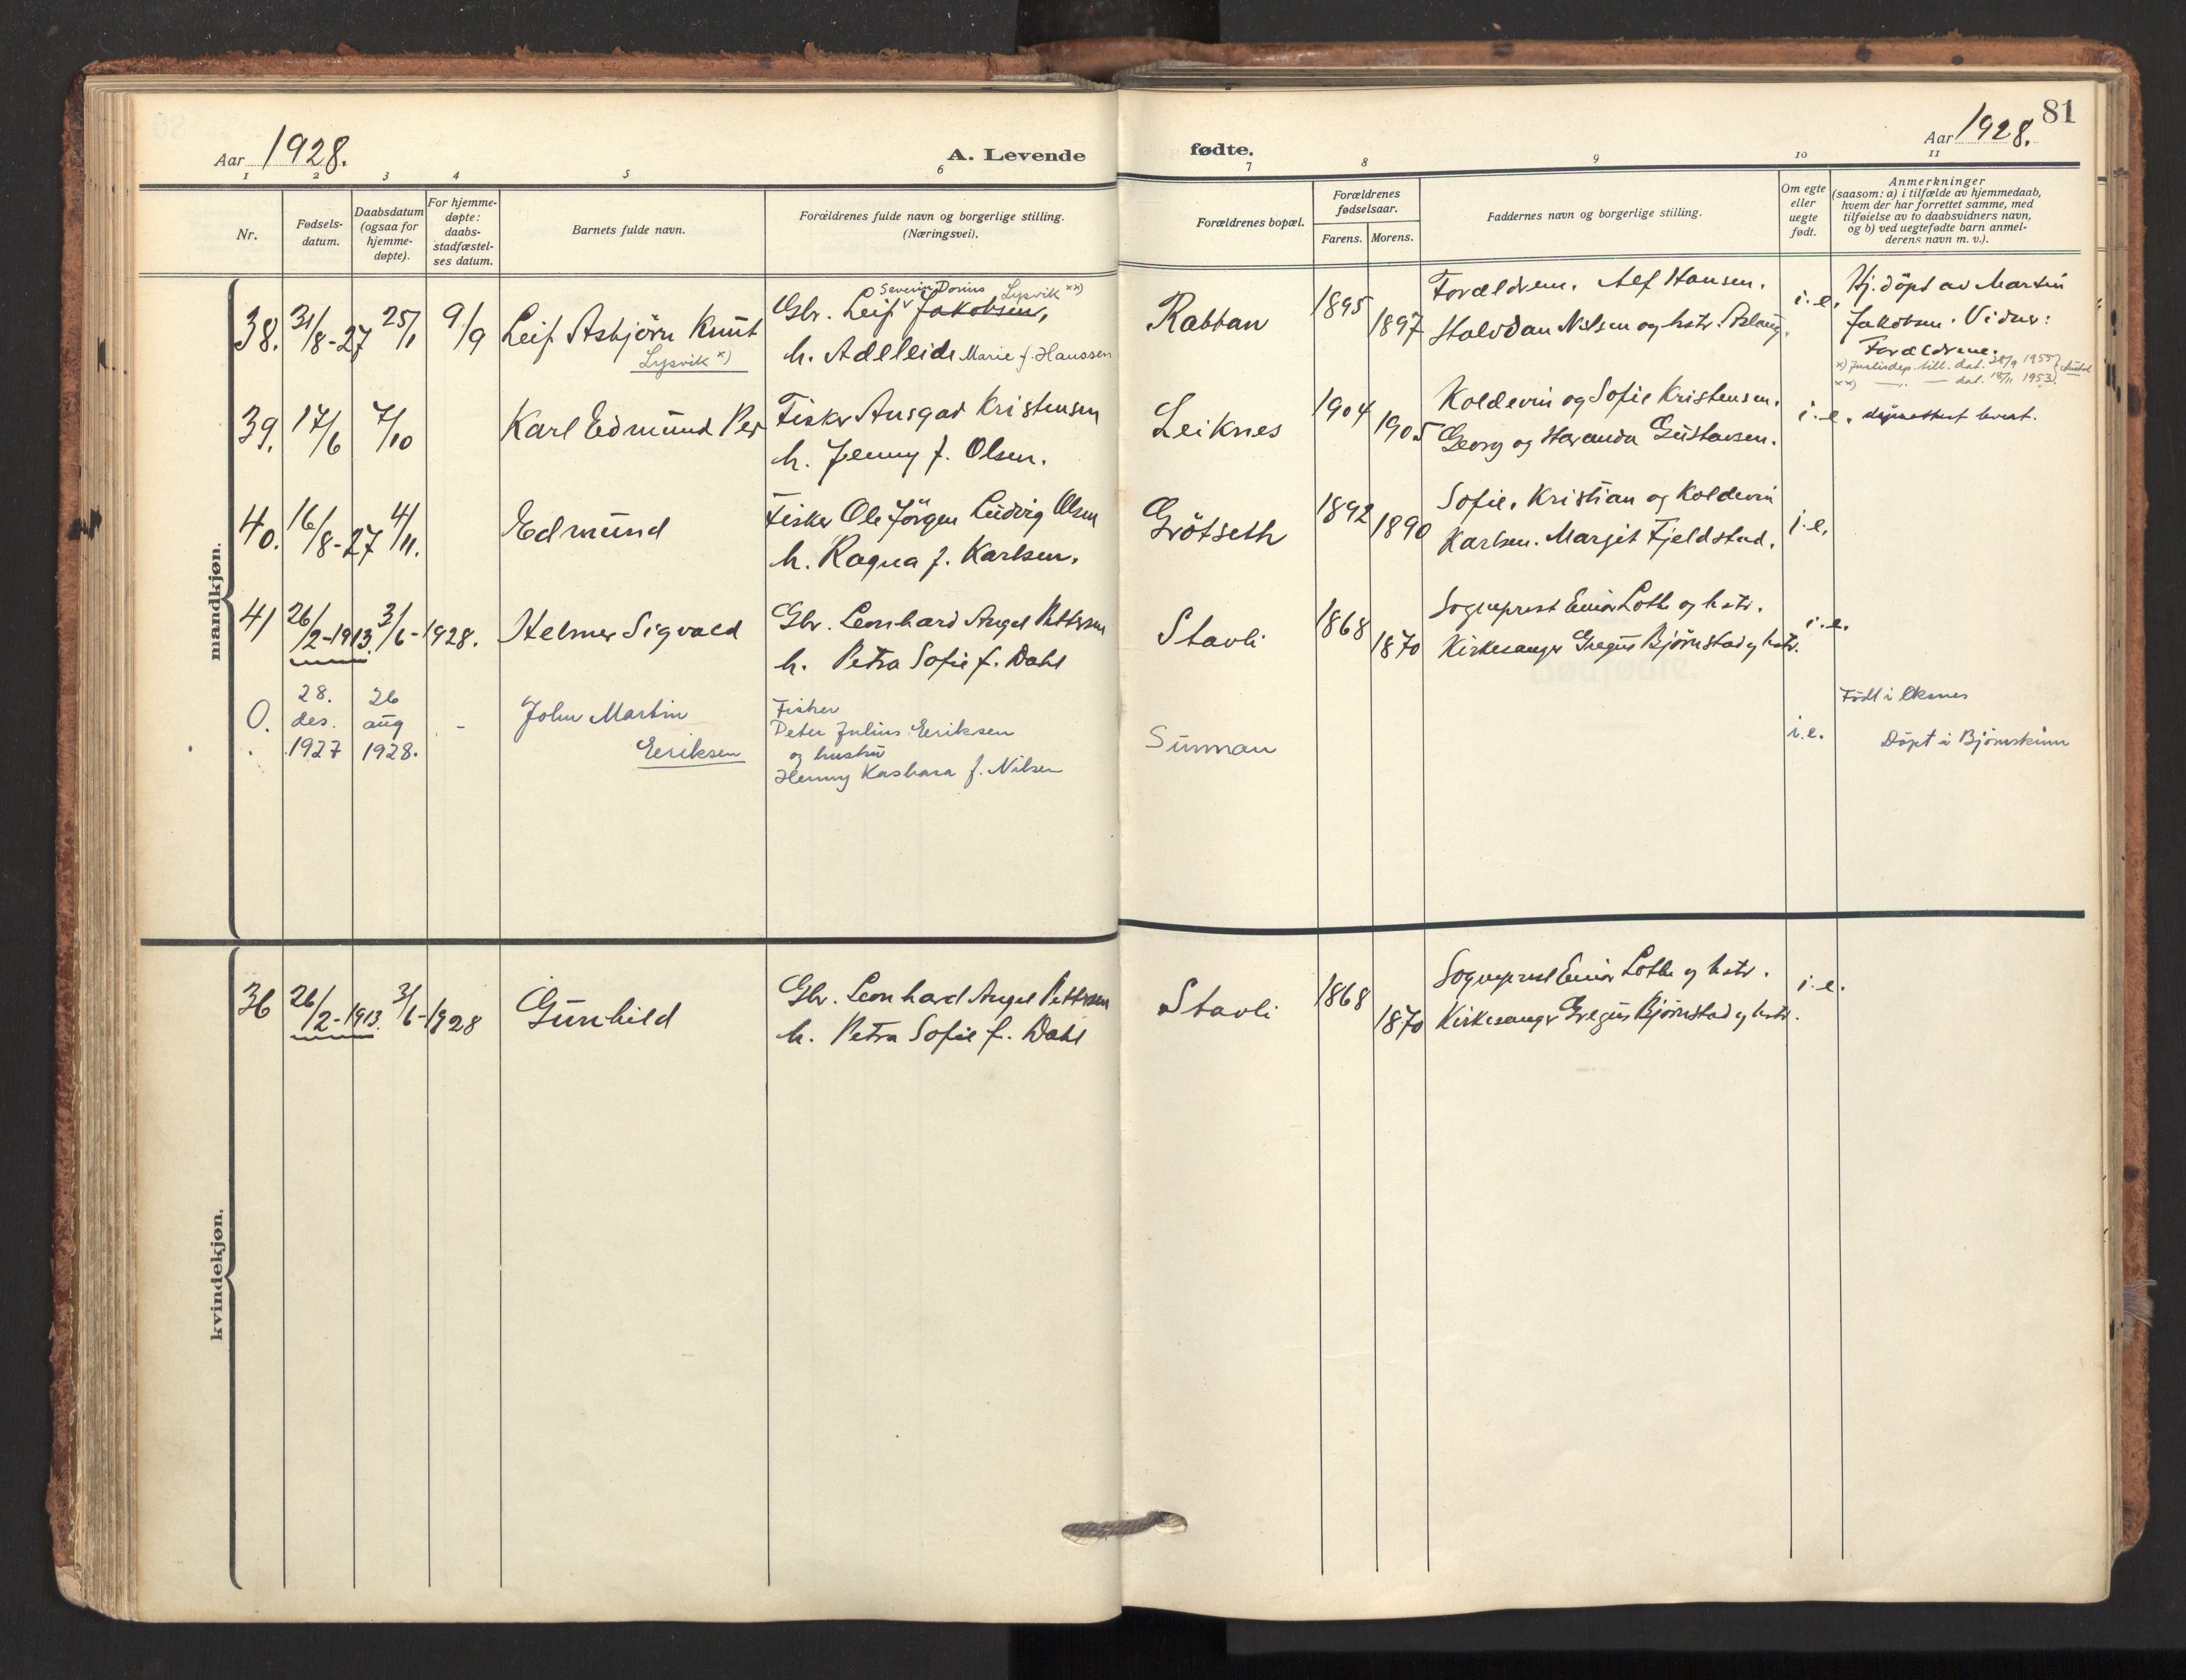 81
Aar 1928.
A. Levende
fødte.
Aar 1928.
1 2 3 4 5 6 7 8 9 10 11
Nr.
Fødsels-
datum.
Daabsdatum
(ogsaa for
hjemme-
døpte).
For hjemme-
døpte:
daabs-
stadfæstel-
ses datum.
Barnets fulde navn.
Forældrenes fulde navn og borgerlige stilling.
(Næringsvei).
Forældrenes bopæl.
Forældrenes
fødselsaar.
Farens. Morens.
Faddernes navn og borgerlige stilling.
Om egte
eller
uegte
født.
Anmerkninger
(saasom: a) i tilfælde av hjemmedaab,
hvem der har forrettet samme, med
tilføielse av to daabsvidners navn,
og b) ved uegtefødte barn anmel-
derens navn m. v.).
mandkjøn.
38. 31/8-27 25/1 9/9
Leif Asbjörn Knut
Lysvik x)
Severin Dorius Lysvik xx)
Gbr. Leif Jakobsen,
h. Adelleide Marie f. Hanssen
Rabban
1895
1897
Forældrene. Alf Hansen.
Halvdan Nilsen og hstr. Aslaug.
i.e.
Hj. döpt av Martin
Jakobsen. Vidner:
Forældrene.
x) Justisdep. till. dat. 28/9 1955
xx) — . — dat. 18/11 1953
39. 17/6 7/10
Karl Edmund Per
Fisker Ansgad Kristensen
h. Jenny f. Olsen.
Leiknes
1904
1905
Koldevin og Sofie Kristensen.
Georg og Haranda Gustavsen.
i.e.
40. 16/8-27 4/11.
Edmund
Fisker Ole Jörgen Ludvig Olsen
h. Ragna f. Karlsen.
Grötseth
1892
1890
Sofie, Kristian og Koldevin
Karlsen. Margit Fjeldstad.
i.e.
41 26/2-1913. 3/6-1928.
Helmer Sigvald
Gbr. Leonhard Angel Pettersen
h. Petra Sofie f. Dahl
Stavli
1868
1870
Sogneprest Einar Lothe og hstr.
Kirkesanger Gregus Bjørnstad og hstr.
i.e.
0. 28. des. 1927 26 aug 1928. -
John Martin
Eeriksen
Fisker
Peder Julius Eeriksen
og hustru
Henny Kasbara f. Nilsen
Sünnan
i.e.
Födt i Öksnes
Döpt i Bjørnskinn
kvindekjøn.
36 26/2-1913. 3/6-1928
Gunhild
Gbr. Leonhard Angel Pettersen
h. Petra Sofie f. Dahl
Stavli
1868
1870
Sogneprest Einar Lothe og hstr.
Kirkesanger Gregus Bjørnstad og hstr.
i.e.